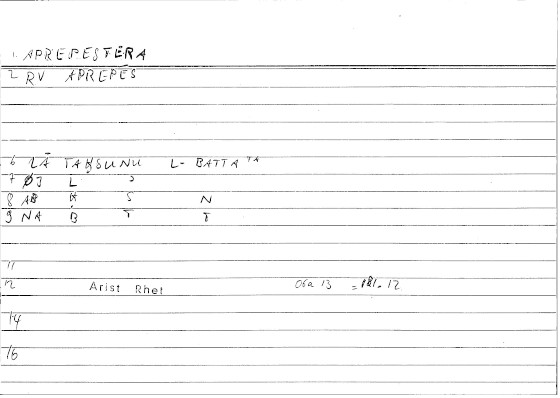 1. APREPESTĒRA
2 RV APREPES
6 LĀ TAḤSUNU L- BATTATA
7 ØJ L
8 AB Ḥ S N
9 NA B T T
11
12 Arist Rhet 06a 13
14
16